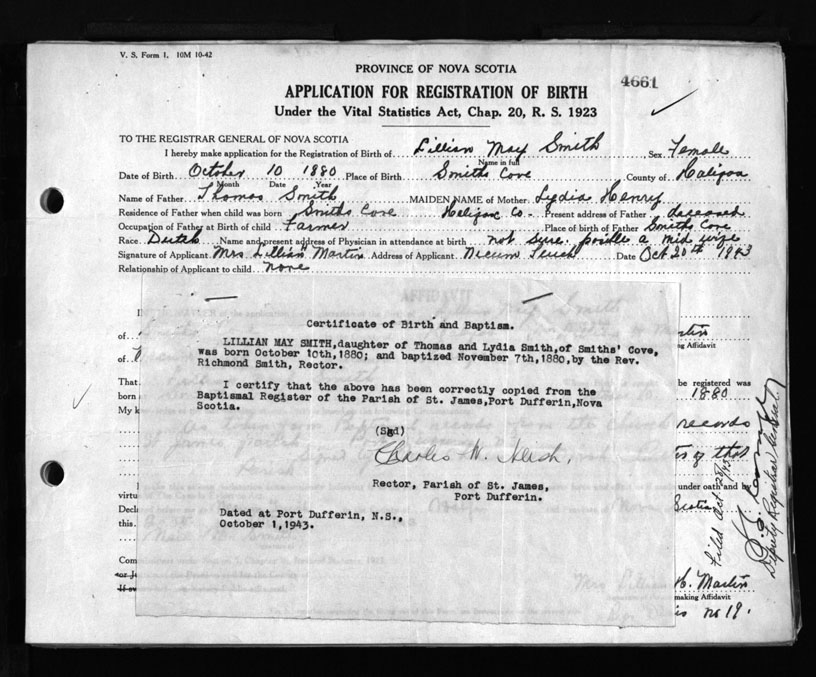 V. S. Form 1. 10M 10-42
PROVINCE OF NOVA SCOTIA
4661
APPLICATION FOR REGISTRATION OF BIRTH
Under the Vital Statistics Act, Chap. 20, R. S. 1923
TO THE REGISTRAR GENERAL OF NOVA SCOTIA
I hereby make application for the Registration of Birth of Lillian May Smith Sex Female
Name in full
Date of Birth October 10 1880 Place of Birth Smiths Cove County of Halifax
Month Date Year
Name of Father Thomas Smith MAIDEN NAME of Mother Lydia Henry
Residence of Father when child was born Smiths Cove Halifax Co- Present address of Father deceased
Occupation of Father at Birth of child Farmer Place of birth of Father Smiths Cove
Race Dutch Name and present address of Physician in attendance at birth not sure. a mid wife
Signature of Applicant Mrs Lillian Martin Address of Applicant Necum Teuch Date Oct 20th 1943
Relationship of Applicant to child none
Certificate of Birth and Baptism.
LILLIAN MAY SMITH,daughter of Thomas and Lydia Smith,of Smiths' Cove,
was born October 10th,1880; and baptized November 7th,1880,by the Rev.
Richmond Smith, Rector.
I certify that the above has been correctly copied from the
Baptismal Register of the Parish of St. James,Port Dufferin,Nova
Scotia.
(Sgd)
Charles W.
Rector, Parish of St. James,
Port Dufferin.
Dated at Port Dufferin, N.S.,
October 1,1943.
of
of
That
born
My k
virtu
Decl
this
Com
or J
If sw
ng Affidavit
be registered was
1880
records
of that
under oath and by
Scotia
H. Martin
making Affidavit
no 19.
Filed Oct 28/43
Deputy Registrar General